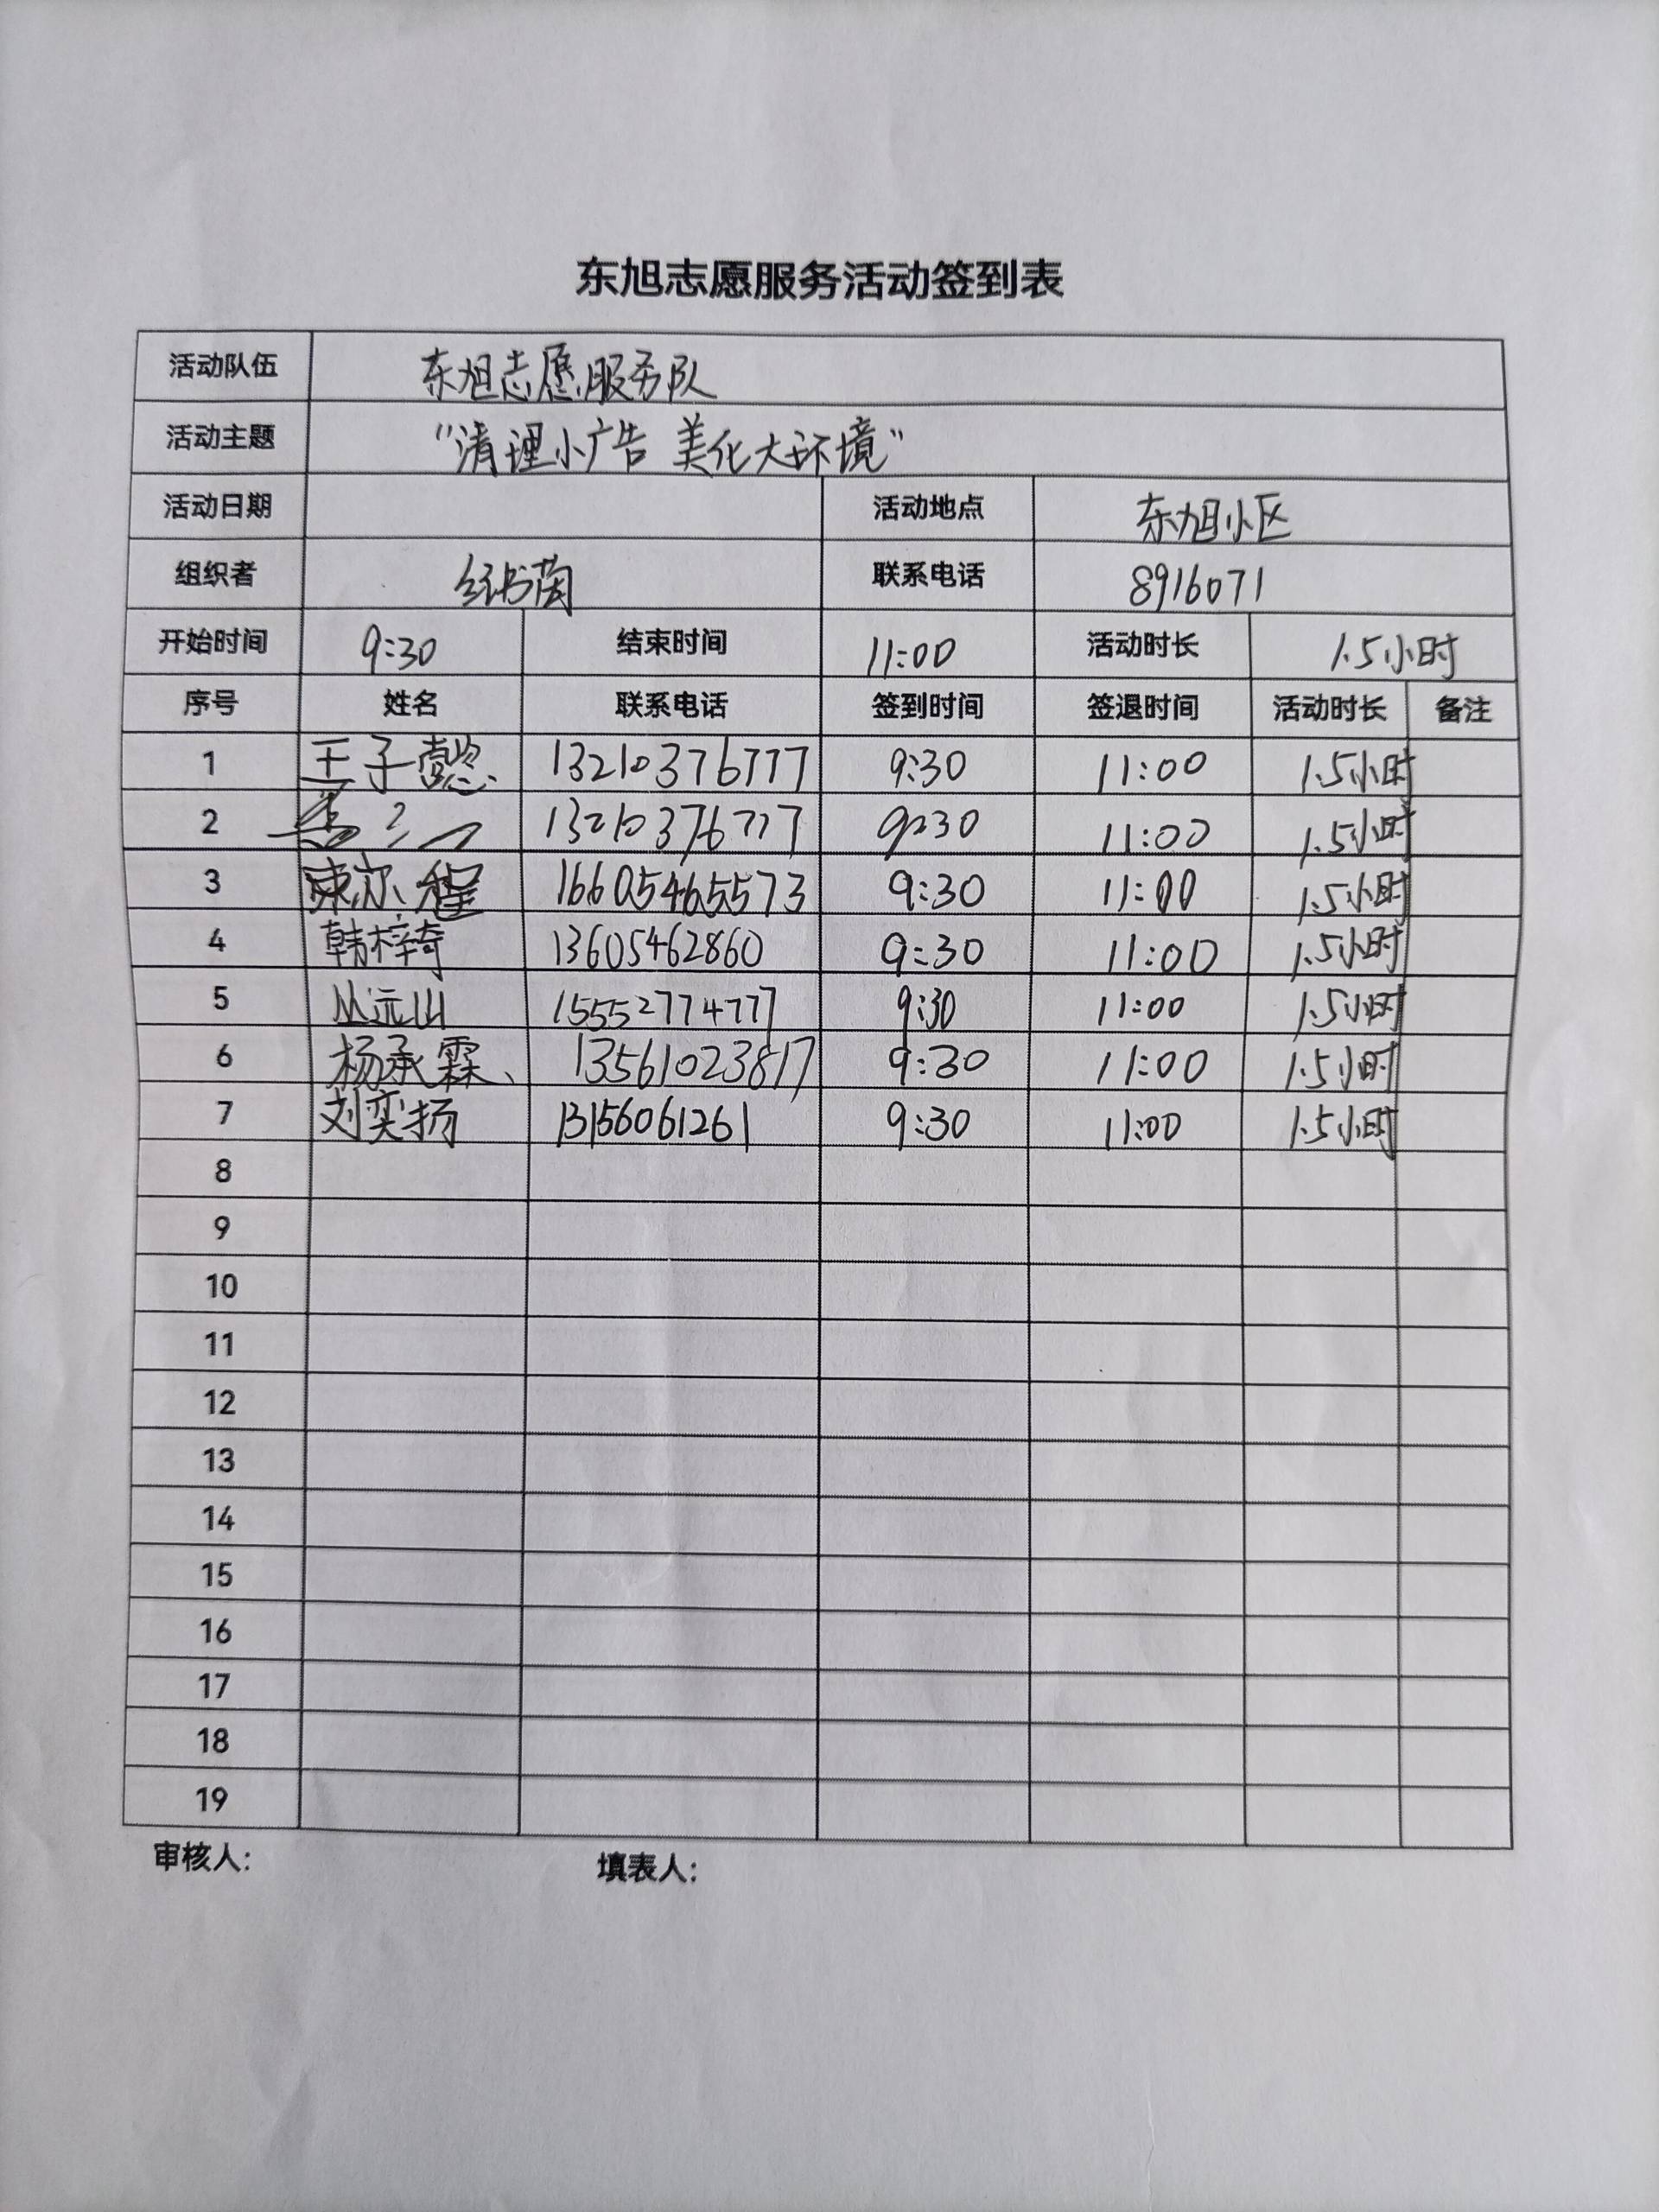 东旭志愿服务活动签到表
活动队伍 东旭志愿服务队
活动主题 “清理小广告 美化大环境”
活动日期 活动地点 东旭小区
组织者 纪书茵 联系电话 8916071
开始时间 9:30 结束时间 11:00 活动时长 1.5小时
序号 姓名 联系电话 签到时间 签退时间 活动时长 备注
1 王子懿 13210376777 9:30 11:00 1.5小时
2 13210376777 9:30 11:00 1.5小时
3 16605465573 9:30 11:00 1.5小时
4 韩梓奇 13605462860 9:30 11:00 1.5小时
5 丛远山 15552774777 9:30 11:00 1.5小时
6 杨承霖、 13561023817 9:30 11:00 1.5小时
7 刘奕扬 13156061261 9:30 11:00 1.5小时
8
9
10
11
12
13
14
15
16
17
18
19
审核人: 填表人: